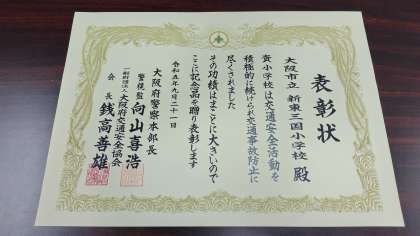 表彰状
大阪市立 新東三国小学校 殿
貴小学校は交通安全活動を
積極的に続けられ交通事故防止に
尽くされました
その功績はまことに大きいので
ここに記念品を贈り表彰します
令和五年九月二十一日
大阪府警察本部長
警視監 向山喜浩
一般財団法人 大阪府交通安全協会
会長 銭高善雄